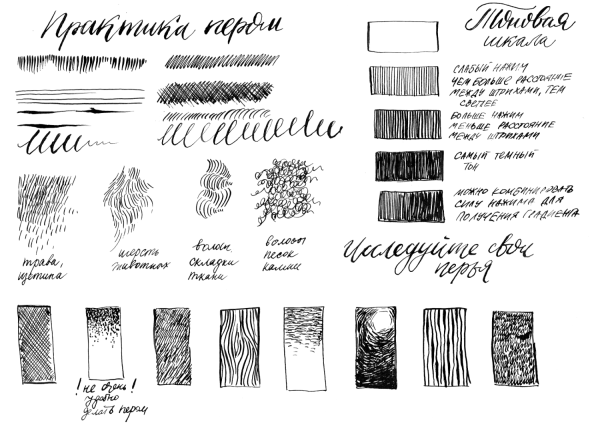 Практика пером
Тоновая
шкала
слабый нажим
чем больше расстояние
между штрихами, тем
светлее
больше нажим
меньше расстояние
между штрихами
самый темный
тон
можно комбинировать
силу нажима для
получения градиента
трава,
щетина
шерсть
животных
волосы
складки
ткани
волосы
песок
камни
Исследуйте свои
перья
! не очень !
удобно
делать пером